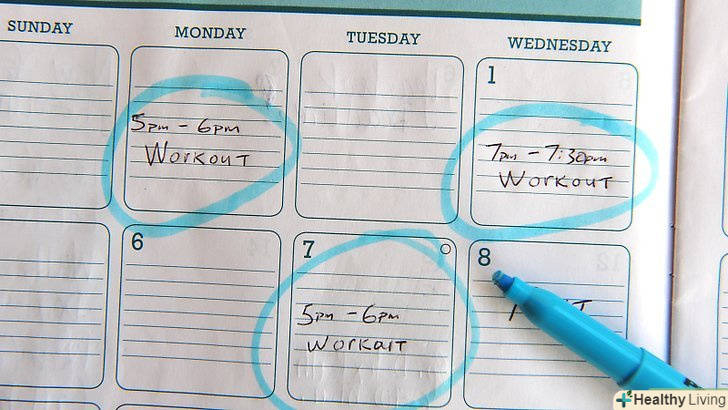 SUNDAY MONDAY TUESDAY WEDNESDAY
1
5pm - 6pm
Workout
7pm - 7:30pm
Workout
6 7 8
5pm - 6pm
Workout
Healthy Living